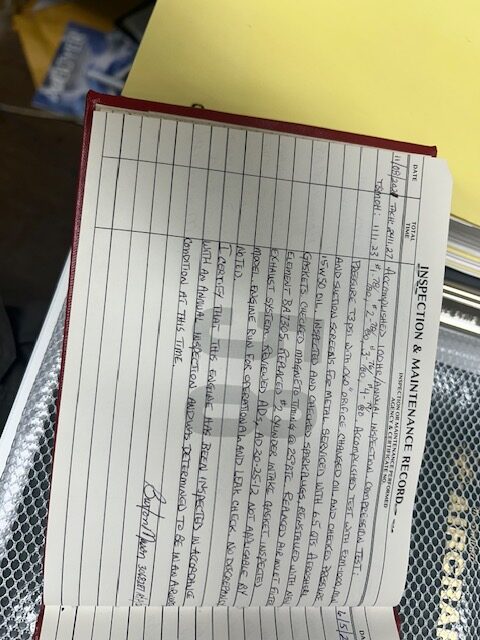 INSPECTION & MAINTENANCE RECORD
DATE
TOTAL TIME
INSPECTION OR MAINTENANCE PERFORMED
AGENCY & CERTIFICATE NO.
11/09/202 TACH: 2411.27 ACCOMPLISHED 100HR/ANNUAL INSPECTION. COMPRESSION TEST.
TSMOH: 1111.23 #1, 78/80, #2, 76/80, #3-76/80 #4 78/80. ACCOMPLISHED TEST WITH
PRESSURE T3 PSI WITH ORIFICE. CHANGED OIL AND CHECKED PRESSURE
AND SUCTION SCREENS FOR METAL. SERVICED WITH 6.5 QTS AEROSHELL
15W50 OIL. INSPECTED AND CHECKED SPARKPLUGS, REINSTALLED WITH NEW
GASKETS. CHECKED MAGNETO TIMING @ 25° BTC. REPLACED AIR INLET FILTER
ELEMENT BA7305. REPLACED #2 CYLINDER INTAKE GASKET. INSPECTED
EXHAUST SYSTEM. REVIEWED ADs, AD NOT APPLICABLE BY
MODEL. ENGINE RUN FOR OPERATIONAL AND LEAK CHECK. NO DISCREPANCIES
NOTED.
I CERTIFY THAT THIS ENGINE HAS BEEN INSPECTED IN ACCORDANCE
WITH AN ANNUAL INSPECTION AND WAS DETERMINED TO BE IN AN AIRWORTHY
CONDITION AT THIS TIME.
6/5/
AIRCRA